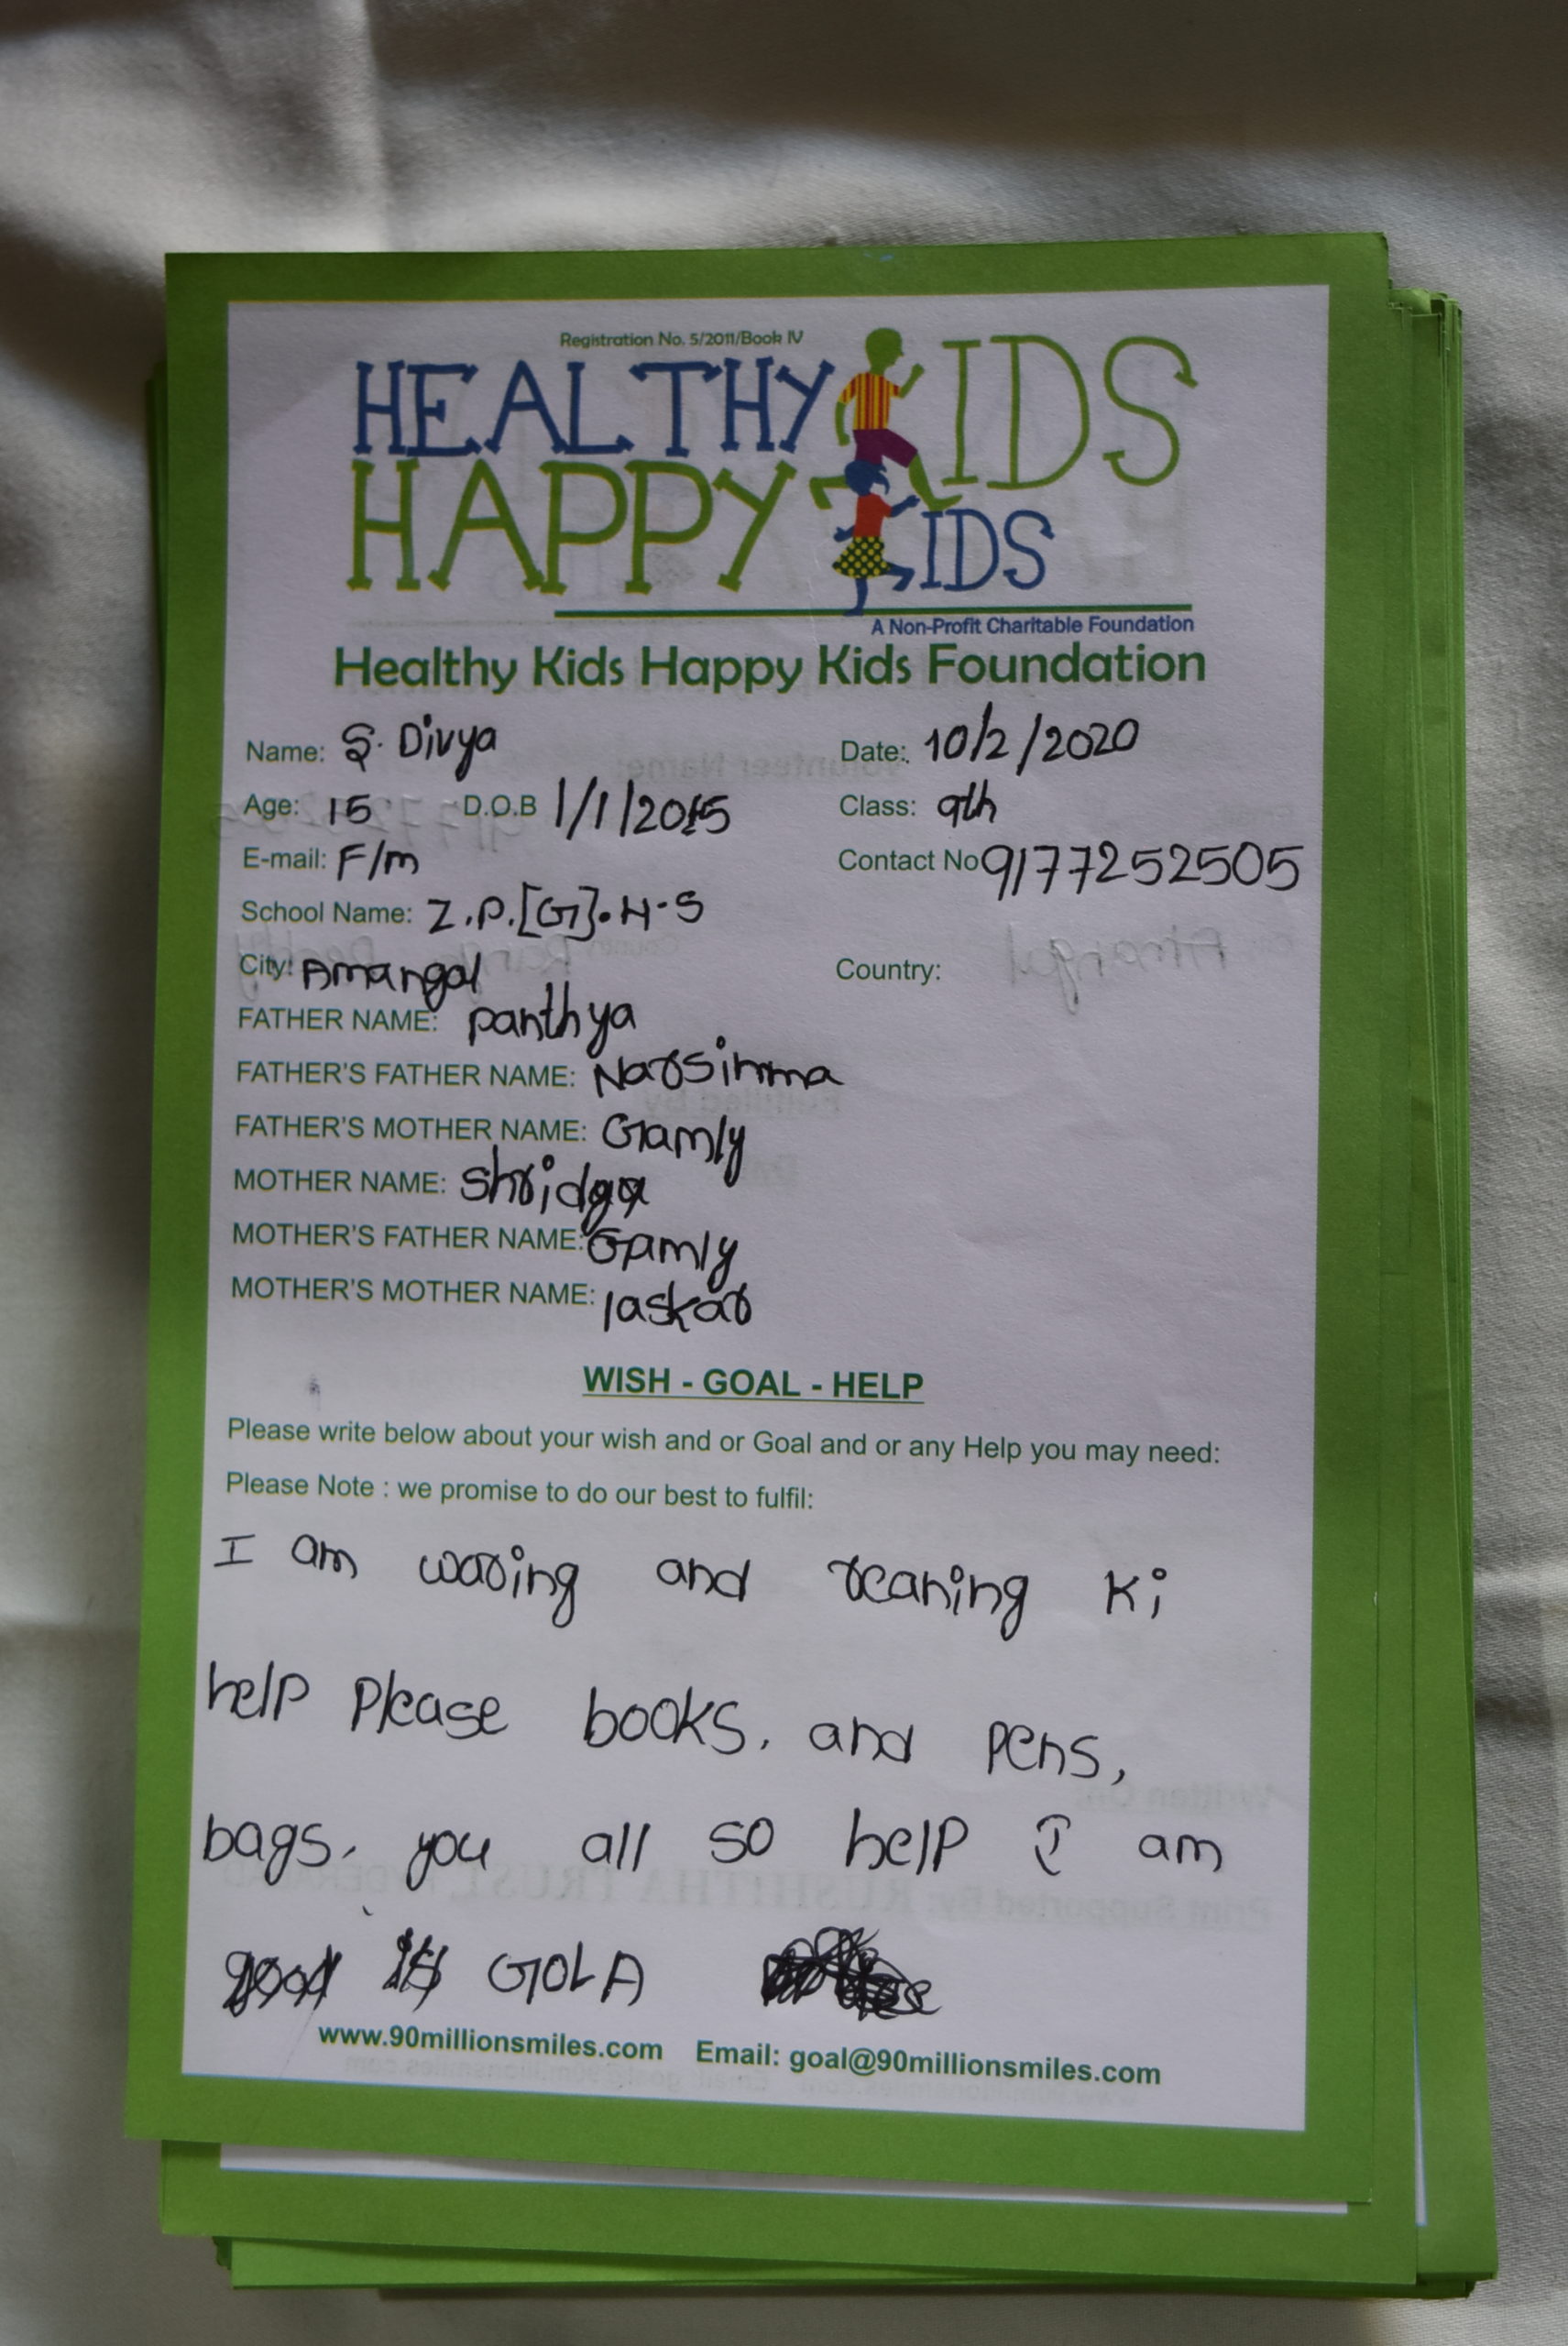 Registration No. 5/2011/Book IV
HEALTHY KIDS
HAPPY KIDS
A Non-Profit Charitable Foundation
Healthy Kids Happy Kids Foundation
Name: S. Divya Date: 10/2/2020
Age: 15 D.O.B 1/1/2015 Class: 9th
E-mail: F/m Contact No 9177252505
School Name: Z.P.[G].H.S
City: Amangal Country:
FATHER NAME: panthya
FATHER'S FATHER NAME: Narsimma
FATHER'S MOTHER NAME: Gamly
MOTHER NAME:
MOTHER'S FATHER NAME: Gamly
MOTHER'S MOTHER NAME: laskar
WISH - GOAL - HELP
Please write below about your wish and or Goal and or any Help you may need:
Please Note : we promise to do our best to fulfil:
I am waring and reaning Ki
help please books, and pens,
bags, you all so help I am
GOLA
www.90millionsmiles.com Email: goal@90millionsmiles.com